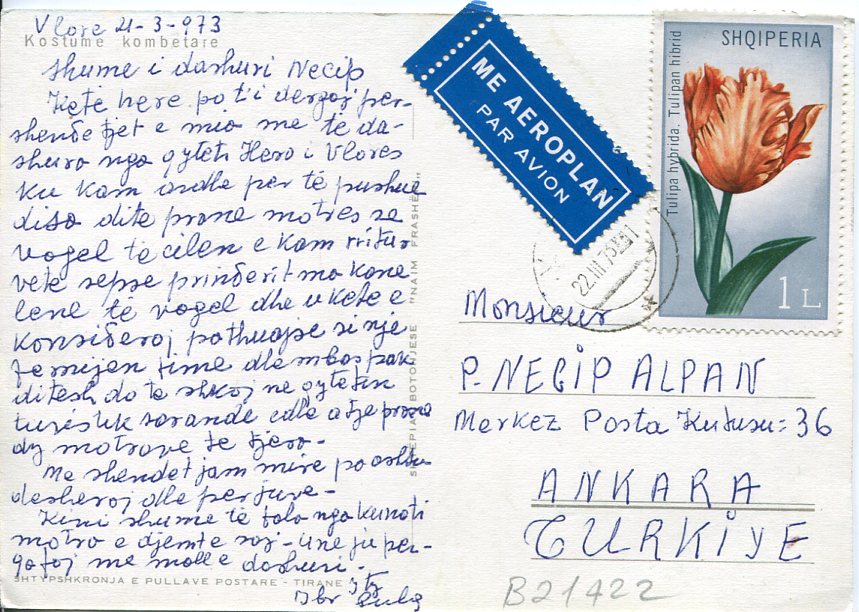 Vlore 21-3-973
Kostume kombetare
Shume i dashuri Necip
Kete here po t'i dergoj per-
shendetjet e mia me te da-
shura nga qyteti Hero i Vlores
ku kam ardhe per të pushue
disa dite prane motres se
vogel te cilen e kam rritur
vete sepse prinderit ma kane
lene te vogel dhe
konsideroj pothuajse si nje
femijen time dhe mbas pak
ditesh do te shkoj ne qytetin
turistik sarande edhe atje prane
dy motrave te tjera-
Me shendet jam mire po ashtu
desheroj dhe per juve-
Keni shume te fala nga kunati
motra e djemte saj- une ju per-
qafoj me mall e dashuri-
SHTYPSHKRONJA E PULLAVE POSTARE - TIRANE
SHTEPIA BOTONJESE "NAIM FRASHËRI"
ME AEROPLAN
PAR AVION
SHQIPERIA
Tulipa hybrida. Tulipan hibrid
1 L
22.III.73
Monsieur
P. NECİP ALPAN
Merkez Posta Kutusu: 36
ANKARA
TURKİYE
B21422